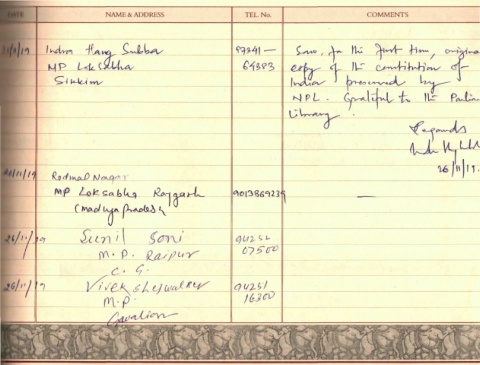 DATE NAME & ADDRESS TEL. No. COMMENTS
26/11/19 Indra Hang Subba 97241—
MP Lok Sabha 64383
Sikkim
Saw, for the first time, original
copy of the constitution of
India preserved by
NPL. Grateful to the
Library.
Regards
26/11/19.
26/11/19 Rodmal Nagar
MP Loksabha Rajgarh 9013869239 —
(Madhya Pradesh)
26/11/19 Sunil Soni 94252
M.P. Raipur 07500
C.G.
26/11/19 Vivek Shejwalker 94251
M.P. 16300
Gwalior